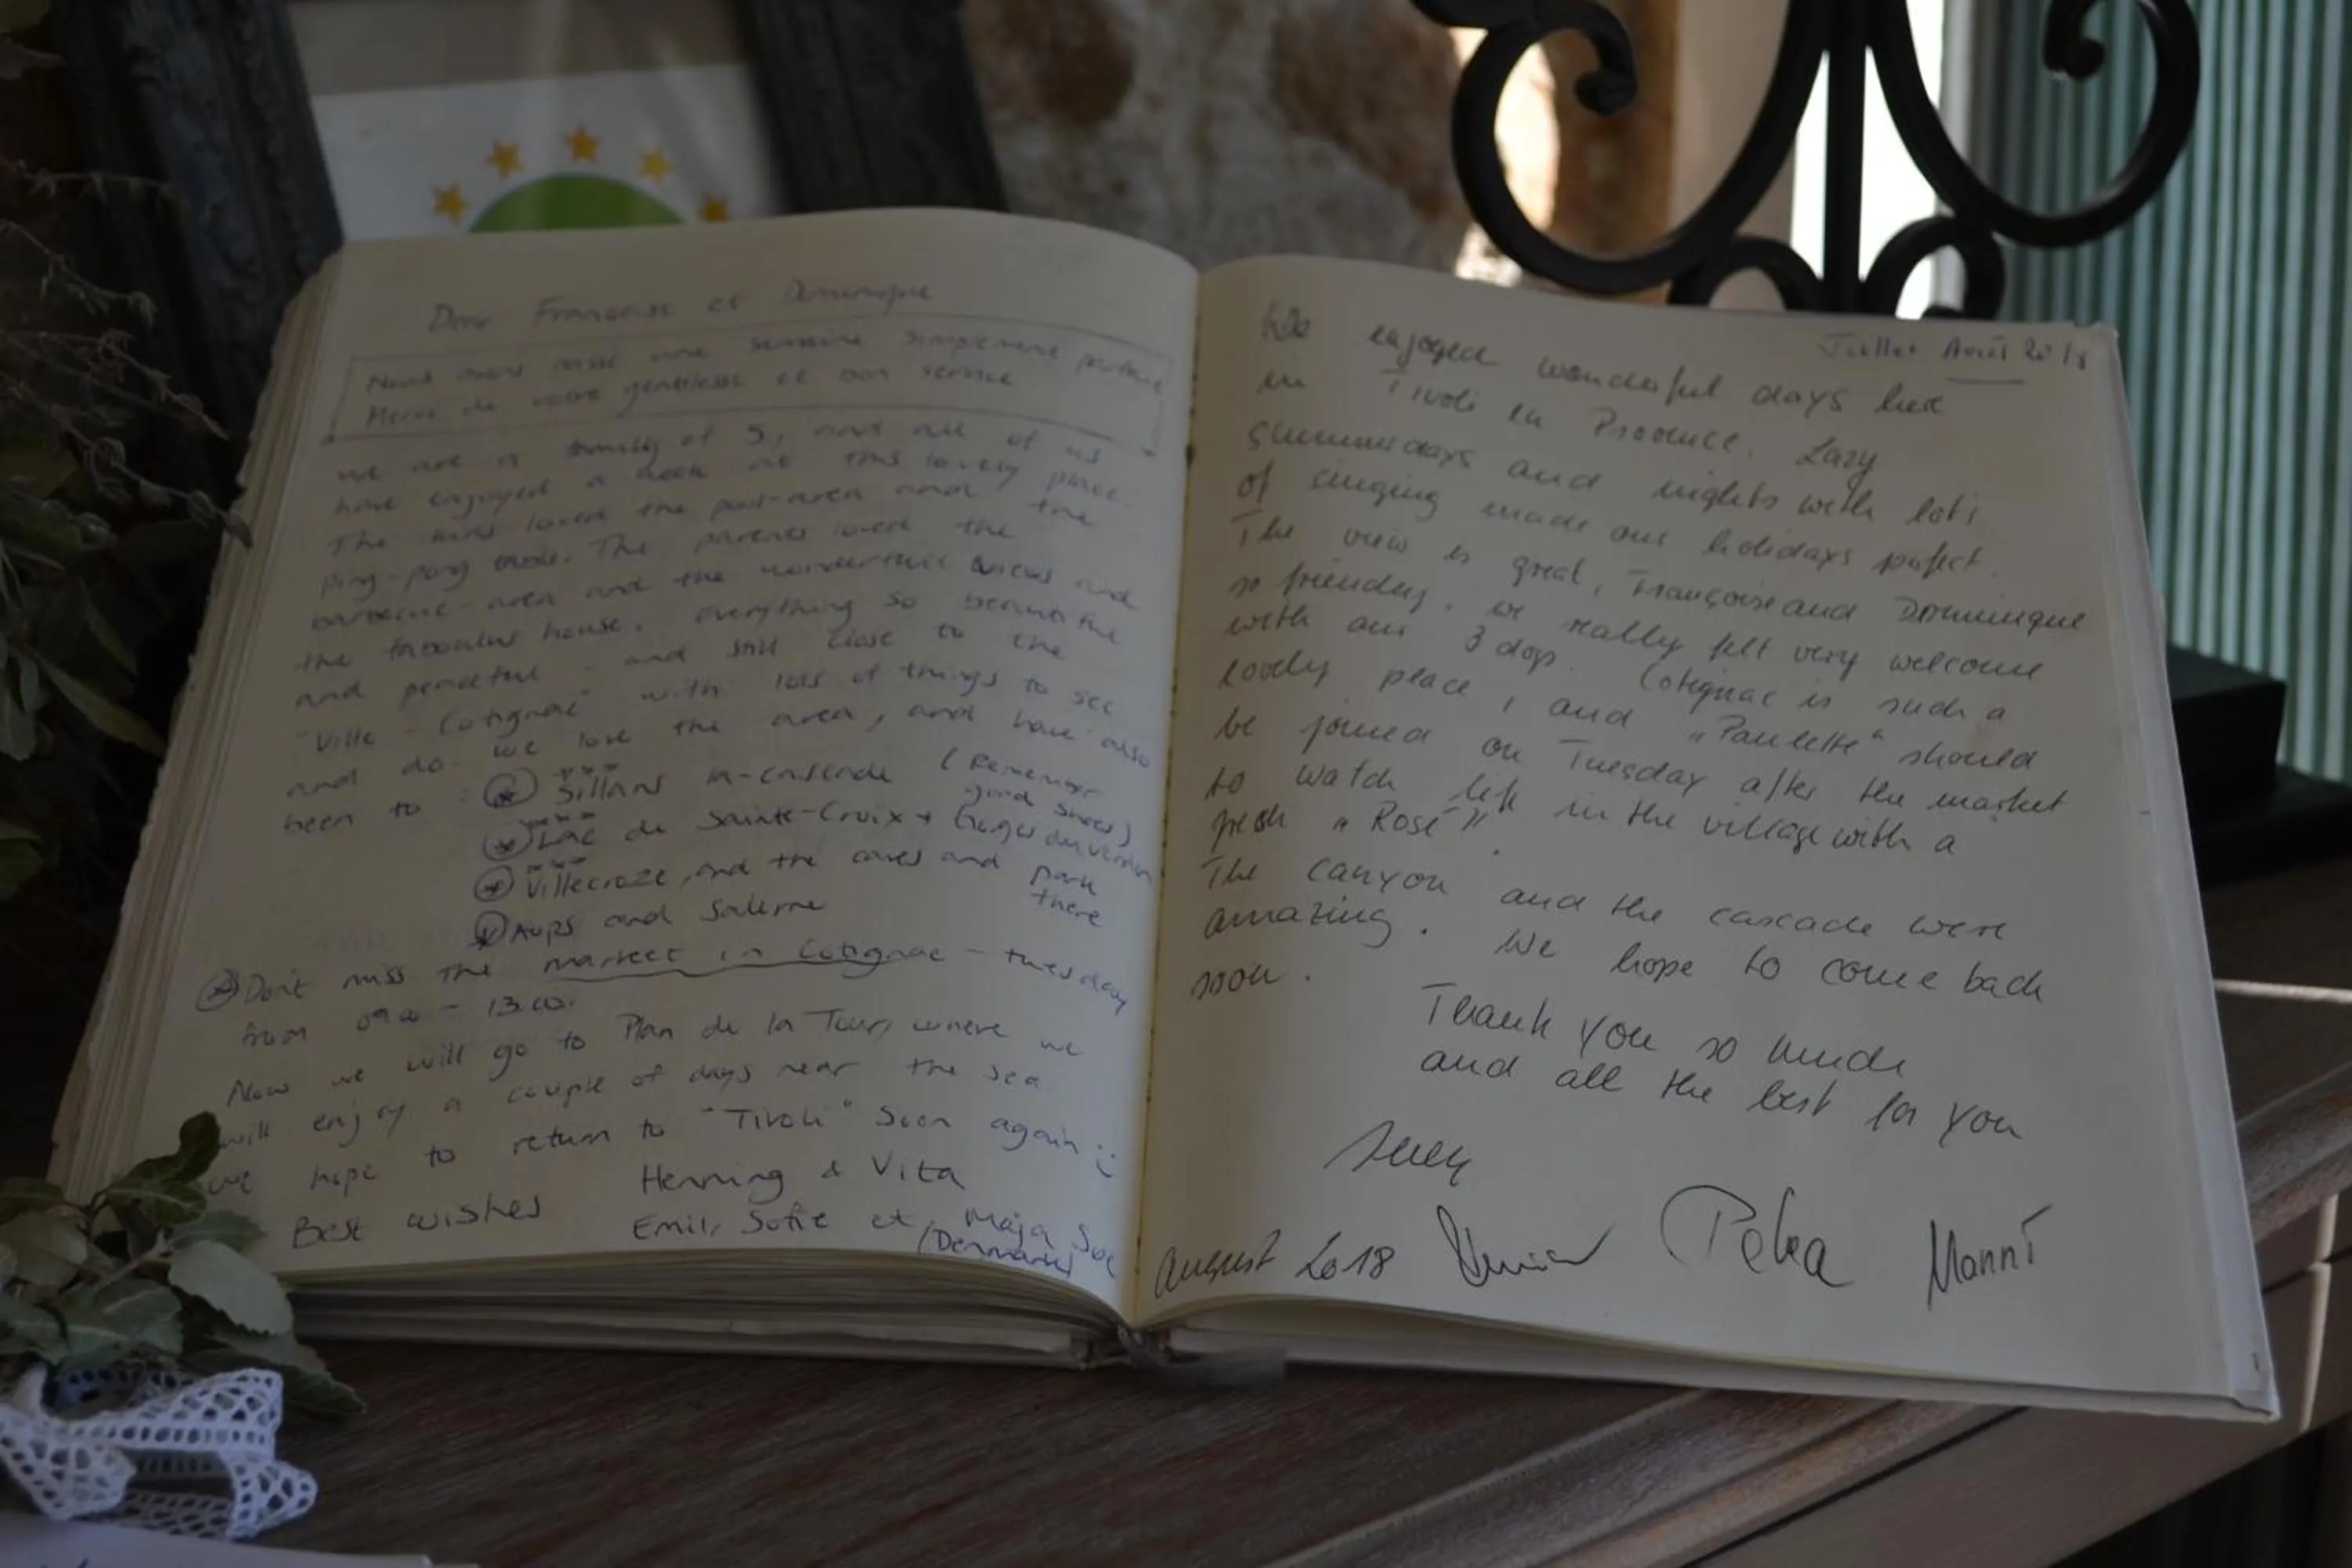 Dear Françoise et Dominique
Nous avons passé une semaine simplement parfaite
Merci de votre gentilesse et bon service
We are a family of 5, and all of us
have enjoyed a week at this lovely place.
The kids loved the pool-area and the
ping-pong table. The parents loved the
barbecue-area and the wonderfull views and
the faboulus house. everything so beautiful
and peaceful - and still close to the
"Ville - Cotignac" with lots of things to see
and do. We love the area, and have also
been to : Sillans la-cascade (Remember
good shoes)
Lac de Sainte-Croix +
Villecroze, and the caves and park
there
Aups and Salerne
Dont miss the market in Cotignac - tuesday
from 09.00 - 13.00.
Now we will go to Plan de la Tour, where we
will enjoy a couple of days near the sea.
We hope to return to "Tivoli" Soon again :)
Best wishes Henning & Vita
Emil, Sofie et Maja
(Denmark)
Juillet Août 2018
We enjoyed wonderful days here
in Tivoli in Provence. Lazy
summerdays and nights with lots
of singing made our holidays perfect.
The view is great, Françoise and Dominique
so friendly, we really felt very welcome
with our 3 dogs. Cotignac is such a
lovely place, and "Paulette" should
be joined on Tuesday after the market
to watch life in the village with a
fresh "Rosé".
The canyon and the cascade were
amazing. We hope to come back
soon.
Thank you so much
and all the best for you
August 2018 Manni